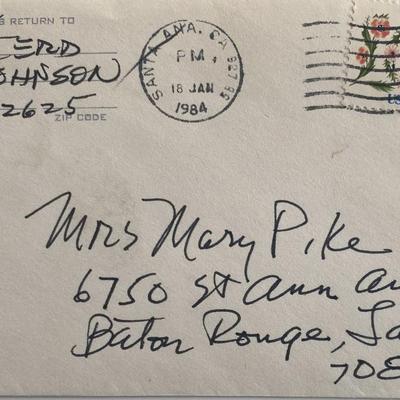 S RETURN TO
ERD
OHNSON
2625
ZIP CODE
SANTA ANA, CA 927 85
PM
18 JAN
1984
US
Mrs Mary Pike
6750 St Ann A
Baton Rouge, La
708